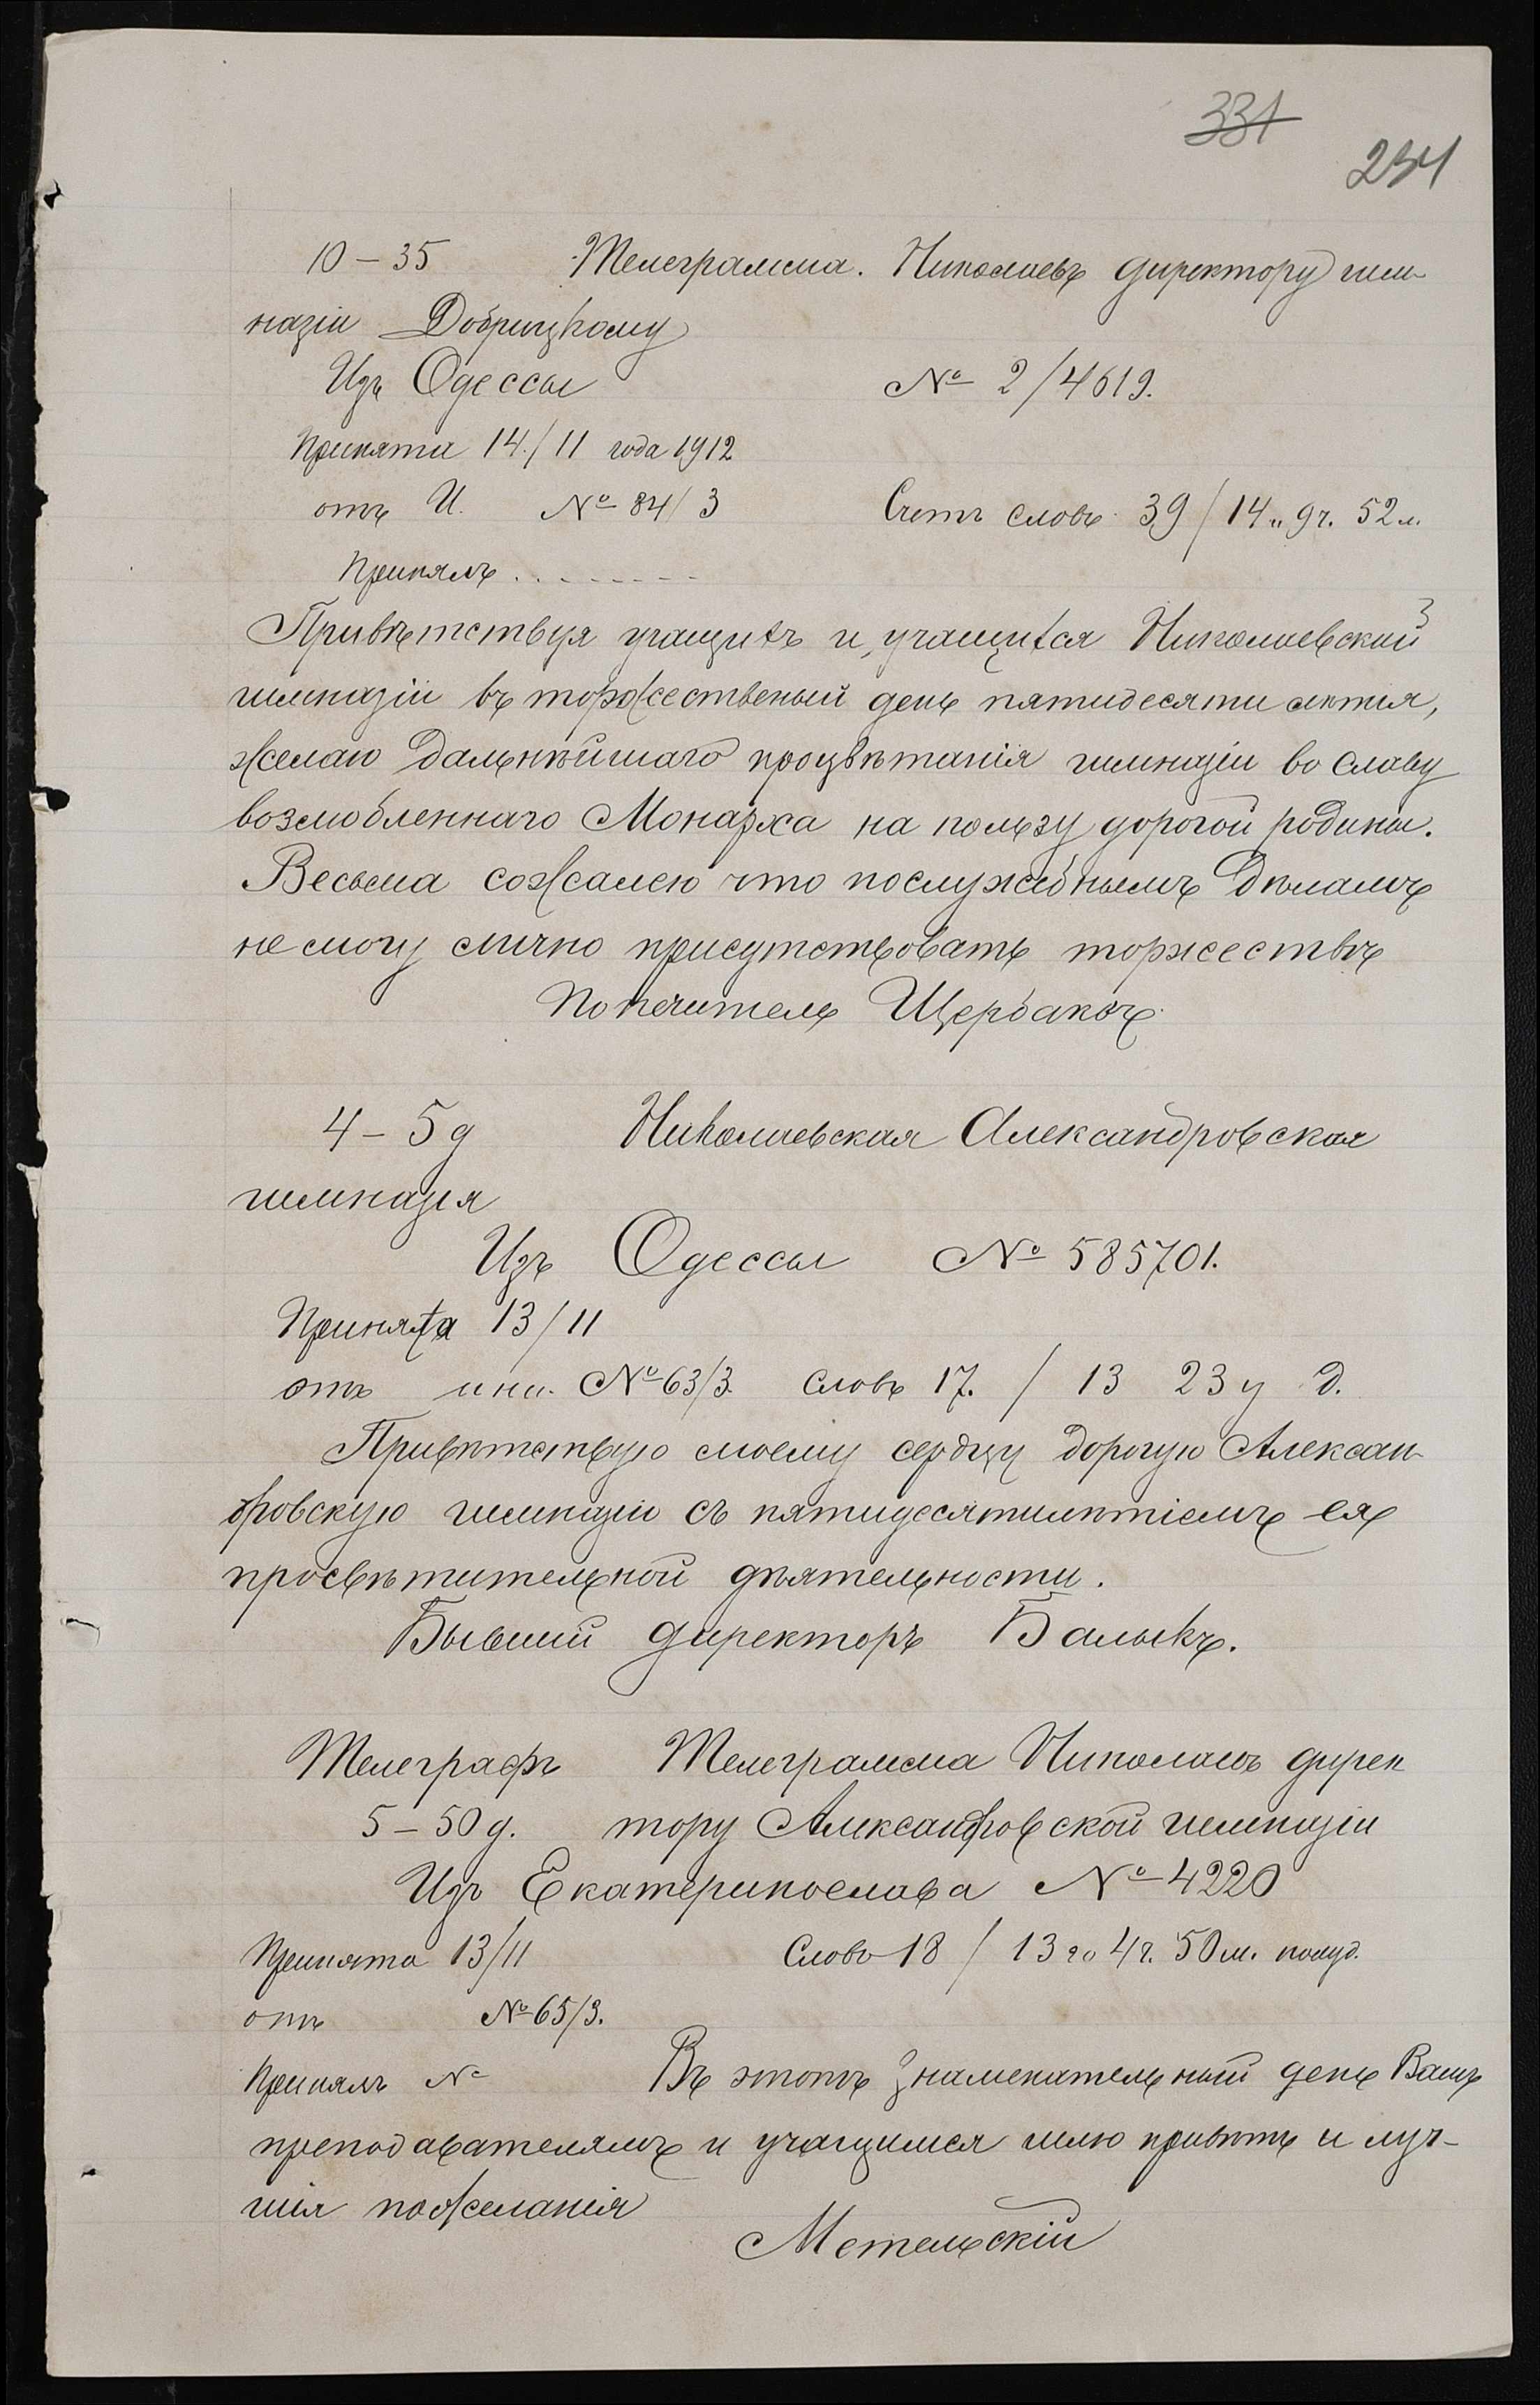 331
234
10 – 35 Телеграмма. Николаевъ директору гим-
назіи Добрицкому
Изъ Одессы № 2/4619.
Принята 14./11 года 1912
отъ И. № 84/3 Счетъ словъ 39/14„ 9ч. 52м.
Принялъ . . . . . . . .
Привѣтствуя учащихъ и учащихся Николаевской
гимназіи въ торжественый день пятидесяти лѣтія,
желаю дальнѣйшаго процвѣтанія гимназіи во славу
возлюбленнаго Монарха на пользу дорогой родины.
Весьма сожалею что послужебнымъ дѣламъ
не могу лично присутствовать торжествѣ
Попечитель Щербаковъ.
4 – 5 д Николаевская Александровская
гимназія
Изъ Одессы № 585701.
Принята 13/11
отъ № 63/3. Словъ 17. / 13 23 у д.
Привѣтствую моему сердцу дорогую Алексан-
дровскую гимназію съ пятидесятилѣтіемъ ея
просвѣтительной дѣятельности.
Бывшій директоръ Балыкъ.
Телеграфъ Телеграмма Николаевъ дирек
5 – 50 д. тору Александровской гимназіи
Изъ Екатеринослава № 4220
Принята 13/11 Слово 18 / 13 го 4ч. 50 м. полуд.
отъ № 65/3.
Принялъ № Въ этотъ знаменательный день Вамъ
преподавателямъ и учащимся шлю привѣтъ и луч-
шія пожеланія
Метельскій